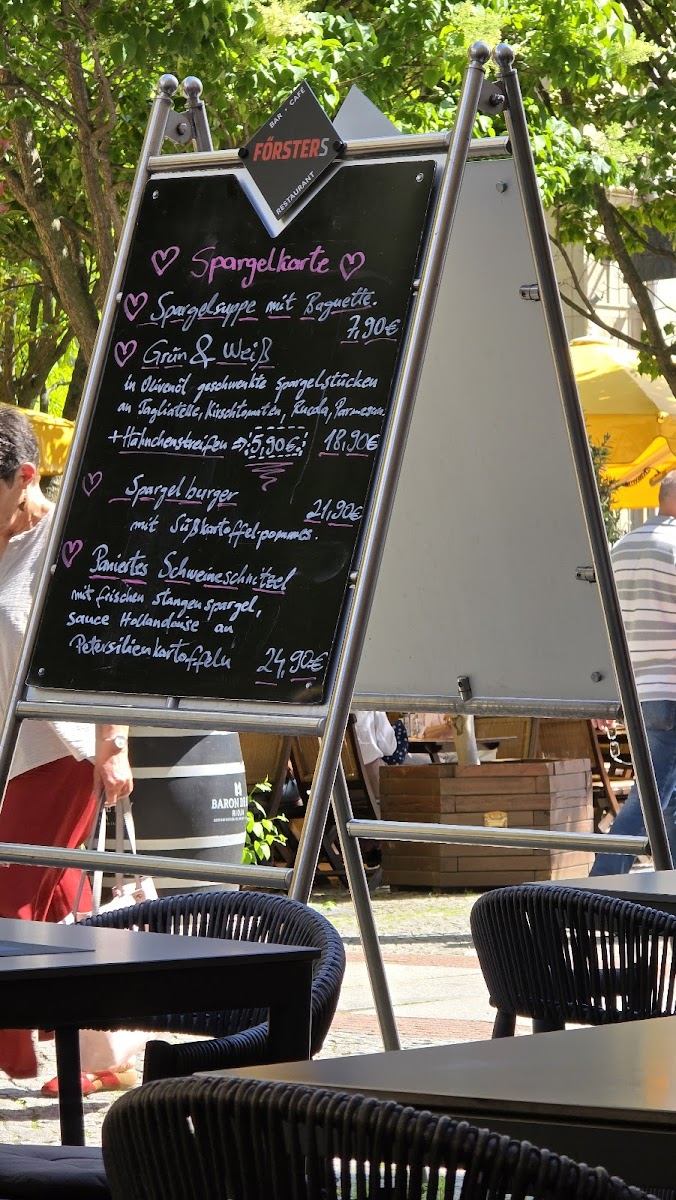 BAR · CAFÉ
FÖRSTERS
RESTAURANT
Spargelkarte
Spargelsuppe mit Baguette.
7,90€
Grün & Weiß
in Olivenöl geschwenkte Spargelstücken
an Tagliatelle, Kirschtomaten, Rucola, Parmesan.
+Hähnchenstreifen ⇒ 5,90€ 18,90€
Spargelburger
21,90€
mit Süßkartoffelpommes.
Paniertes Schweineschnitzel
mit frischen Stangenspargel,
Sauce Hollandaise an
Petersilienkartoffeln 24,90€
BARON DE
RIOJA